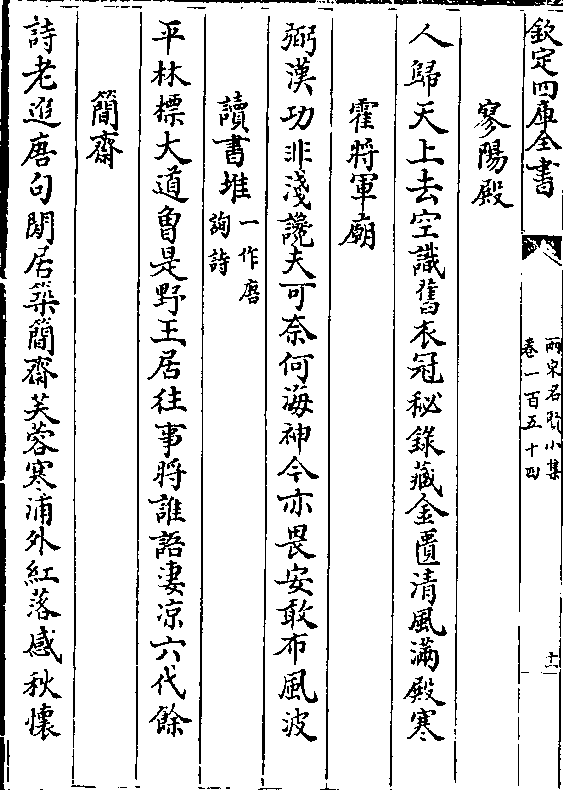 欽定四庫全書
兩宋名賢小集
卷一百五十四
十一
寥陽殿
人歸天上去空識舊衣冠秘錄藏金匱清風滿殿寒
霍將軍廟
弼漢功非淺讒夫可奈何海神今亦畏安敢布風波
讀書堆一作唐
詢詩
平林標大道魯是野王居往事將誰語淒凉六代餘
簡齋
詩老逃唐句閒居築簡齋芙蓉寒浦外紅落感秋懷